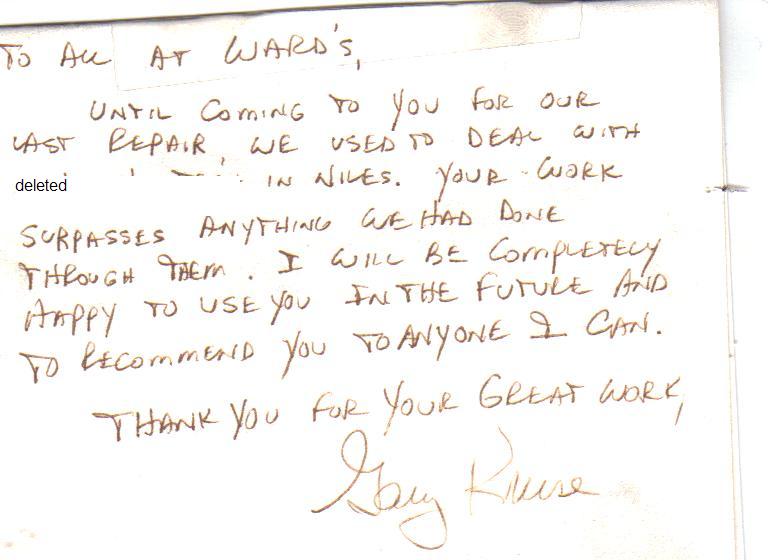 TO ALL AT WARD'S,
UNTIL COMING TO YOU FOR OUR
LAST REPAIR, WE USED TO DEAL WITH
deleted IN NILES. YOUR WORK
SURPASSES ANYTHING WE HAD DONE
THROUGH THEM. I WILL BE COMPLETELY
HAPPY TO USE YOU IN THE FUTURE AND
TO RECOMMEND YOU TO ANYONE I CAN.
THANK YOU FOR YOUR GREAT WORK,
Gary Kruse